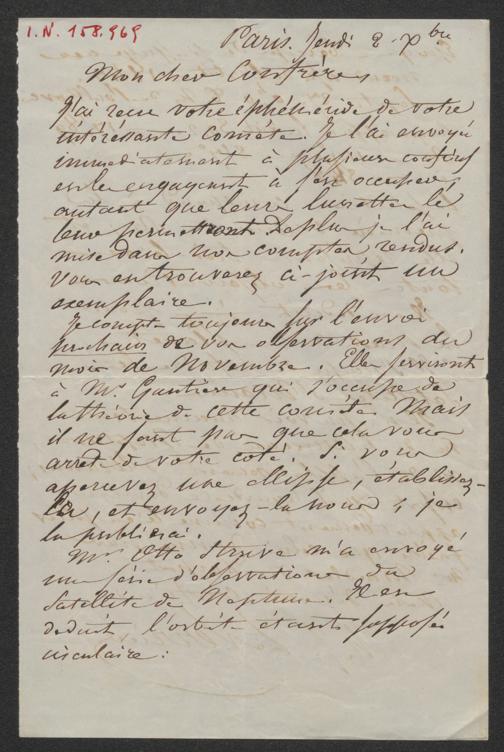 I.N. 158.969
Paris. Jeudi 2. Xbre
Mon cher Confrère,
J'ai reçu votre éphéméride de votre
intéressante comète. Je l'ai envoyé
immédiatement à plusieurs
en les engageant à s'en occuper,
autant que leurs lunettes le
leur permettront. De plus je l'ai
mise dans nos comptes rendus.
Vous en trouverez ci-joint un
exemplaire.
Je compte toujours sur l'envoi
prochain de vos observations du
mois de Novembre. Elles serviront
à Mr. Gautier qui s'occupe de
la théorie de cette comète. Mais
il ne faut pas que cela vous
arrête de votre côté. Si vous
apercevez une ellipse, établissez-
la, et envoyez-la nous ; je
la publierai.
Mr. Otto Struve m'a envoyé
une série d'observations du
satellite de Neptune. Il en
déduit, l'orbite étant supposée
circulaire :